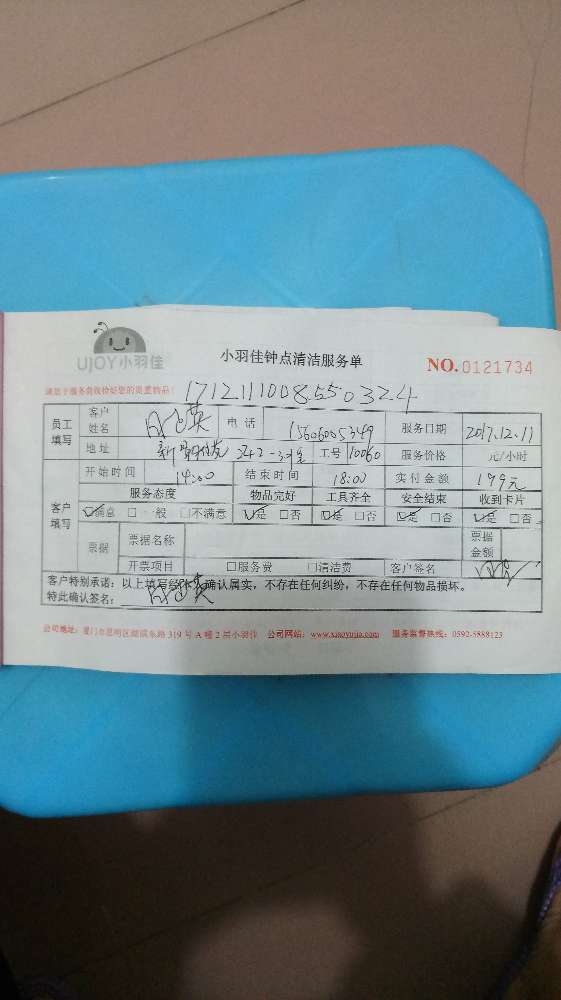 UJOY小羽佳
小羽佳钟点清洁服务单
NO.0121734
请您于服务前收拾好您的贵重物品!
171211100855 0324
员工填写 客户姓名 电话 15606005349 服务日期 2017.12.11
地址 242-301室 工号 10060 服务价格 元/小时
开始时间 14:00 结束时间 18:00 实付金额 199元
客户填写 服务态度 物品完好 工具齐全 安全结束 收到卡片
☑满意 □一般 □不满意 ☑是 □否 ☑是 □否 ☑是 □否 ☑是 □否
票据 票据名称 票据金额
开票项目 □服务费 □清洁费 客户签名
客户特别承诺:以上填写经本人确认属实,不存在任何纠纷,不存在任何物品损坏。
特此确认签名:
公司地址:厦门市思明区湖滨东路 319 号 A 幢 2 层小羽佳 公司网站:www.xiaoyujia.com 服务监督热线:0592-5888123